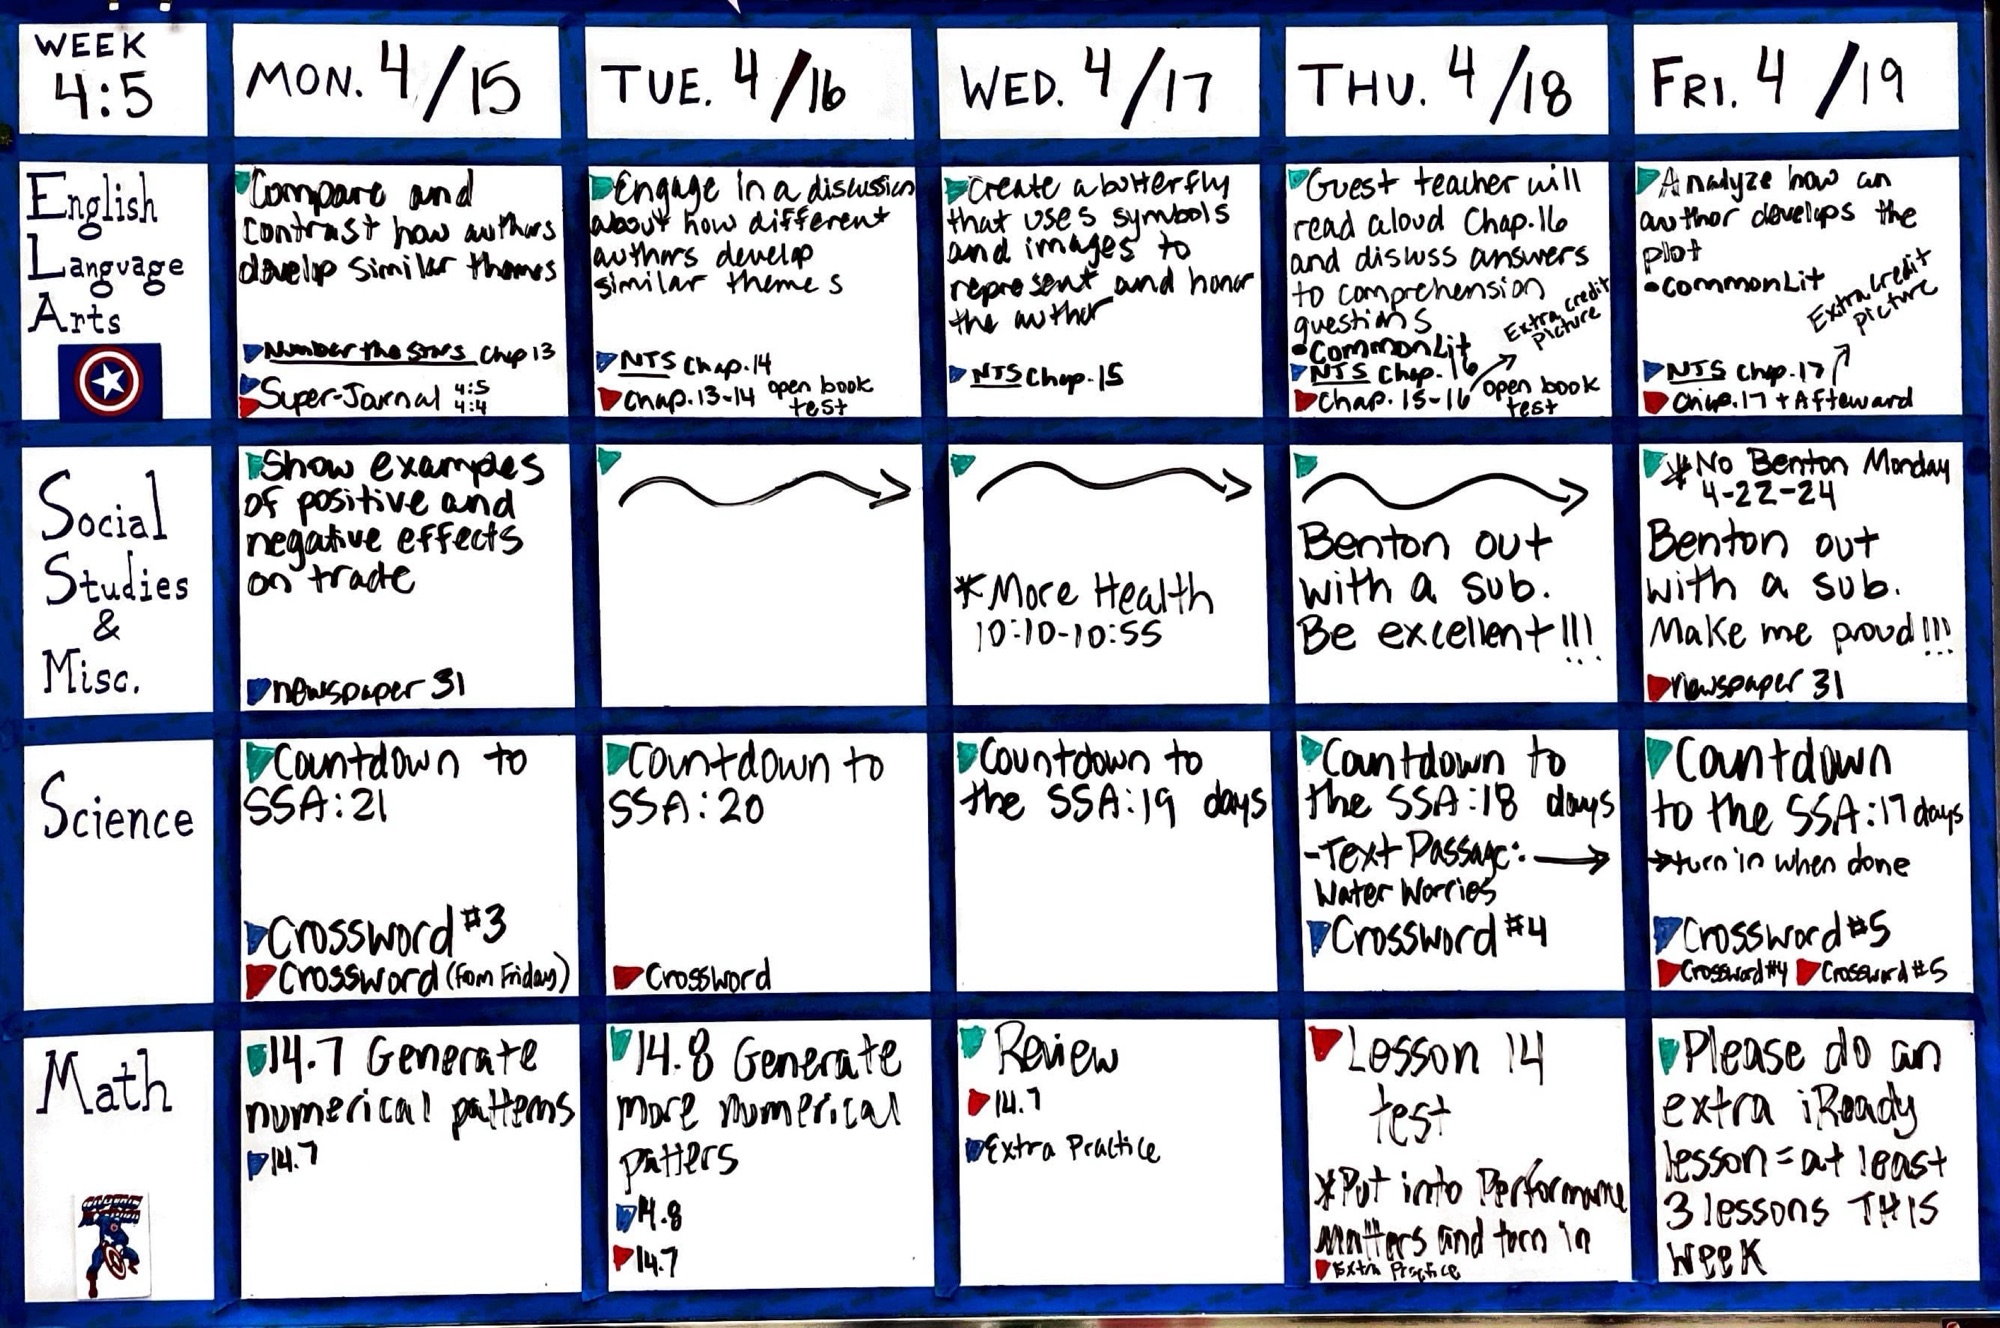 WEEK
4:5
MON. 4/15
TUE. 4/16
WED. 4/17
THU. 4/18
FRI. 4/19
English
Language
Arts
Compare and
contrast how authors
develop similar themes
Number the Stars Chap 13
Super-Journal 4:5
4:4
Engage in a discussion
about how different
authors develop
similar themes
NTS Chap. 14
Chap. 13-14 open book
test
Create a butterfly
that uses symbols
and images to
represent and honor
the author
NTS Chap. 15
Guest teacher will
read aloud Chap. 16
and discuss answers
to comprehension
questions
•CommonLit
Extra credit
picture
NTS Chap. 16
Chap. 15-16 open book
test
Analyze how an
author develops the
plot
•CommonLit
Extra credit
picture
NTS Chap. 17
Chap. 17 + Afterward
Social
Studies
&
Misc.
Show examples
of positive and
negative effects
on trade
newspaper 31
*More Health
10:10-10:55
Benton out
with a sub.
Be excellent!!!
*No Benton Monday
4-22-24
Benton out
with a sub.
Make me proud!!!
newspaper 31
Science
Countdown to
SSA:21
Crossword #3
Crossword (from Friday)
Countdown to
SSA:20
Crossword
Countdown to
the SSA:19 days
Countdown to
the SSA:18 days
-Text Passage: →
Water Worries
Crossword #4
Countdown
to the SSA:17 days
→turn in when done
Crossword #5
Crossword #4 Crossword #5
Math
14.7 Generate
numerical patterns
14.7
14.8 Generate
more numerical
patters
14.8
14.7
Review
14.7
Extra Practice
Lesson 14
test
*Put into Performance
Matters and turn in
Extra Practice
Please do an
extra iReady
lesson = at least
3 lessons THIS
WEEK